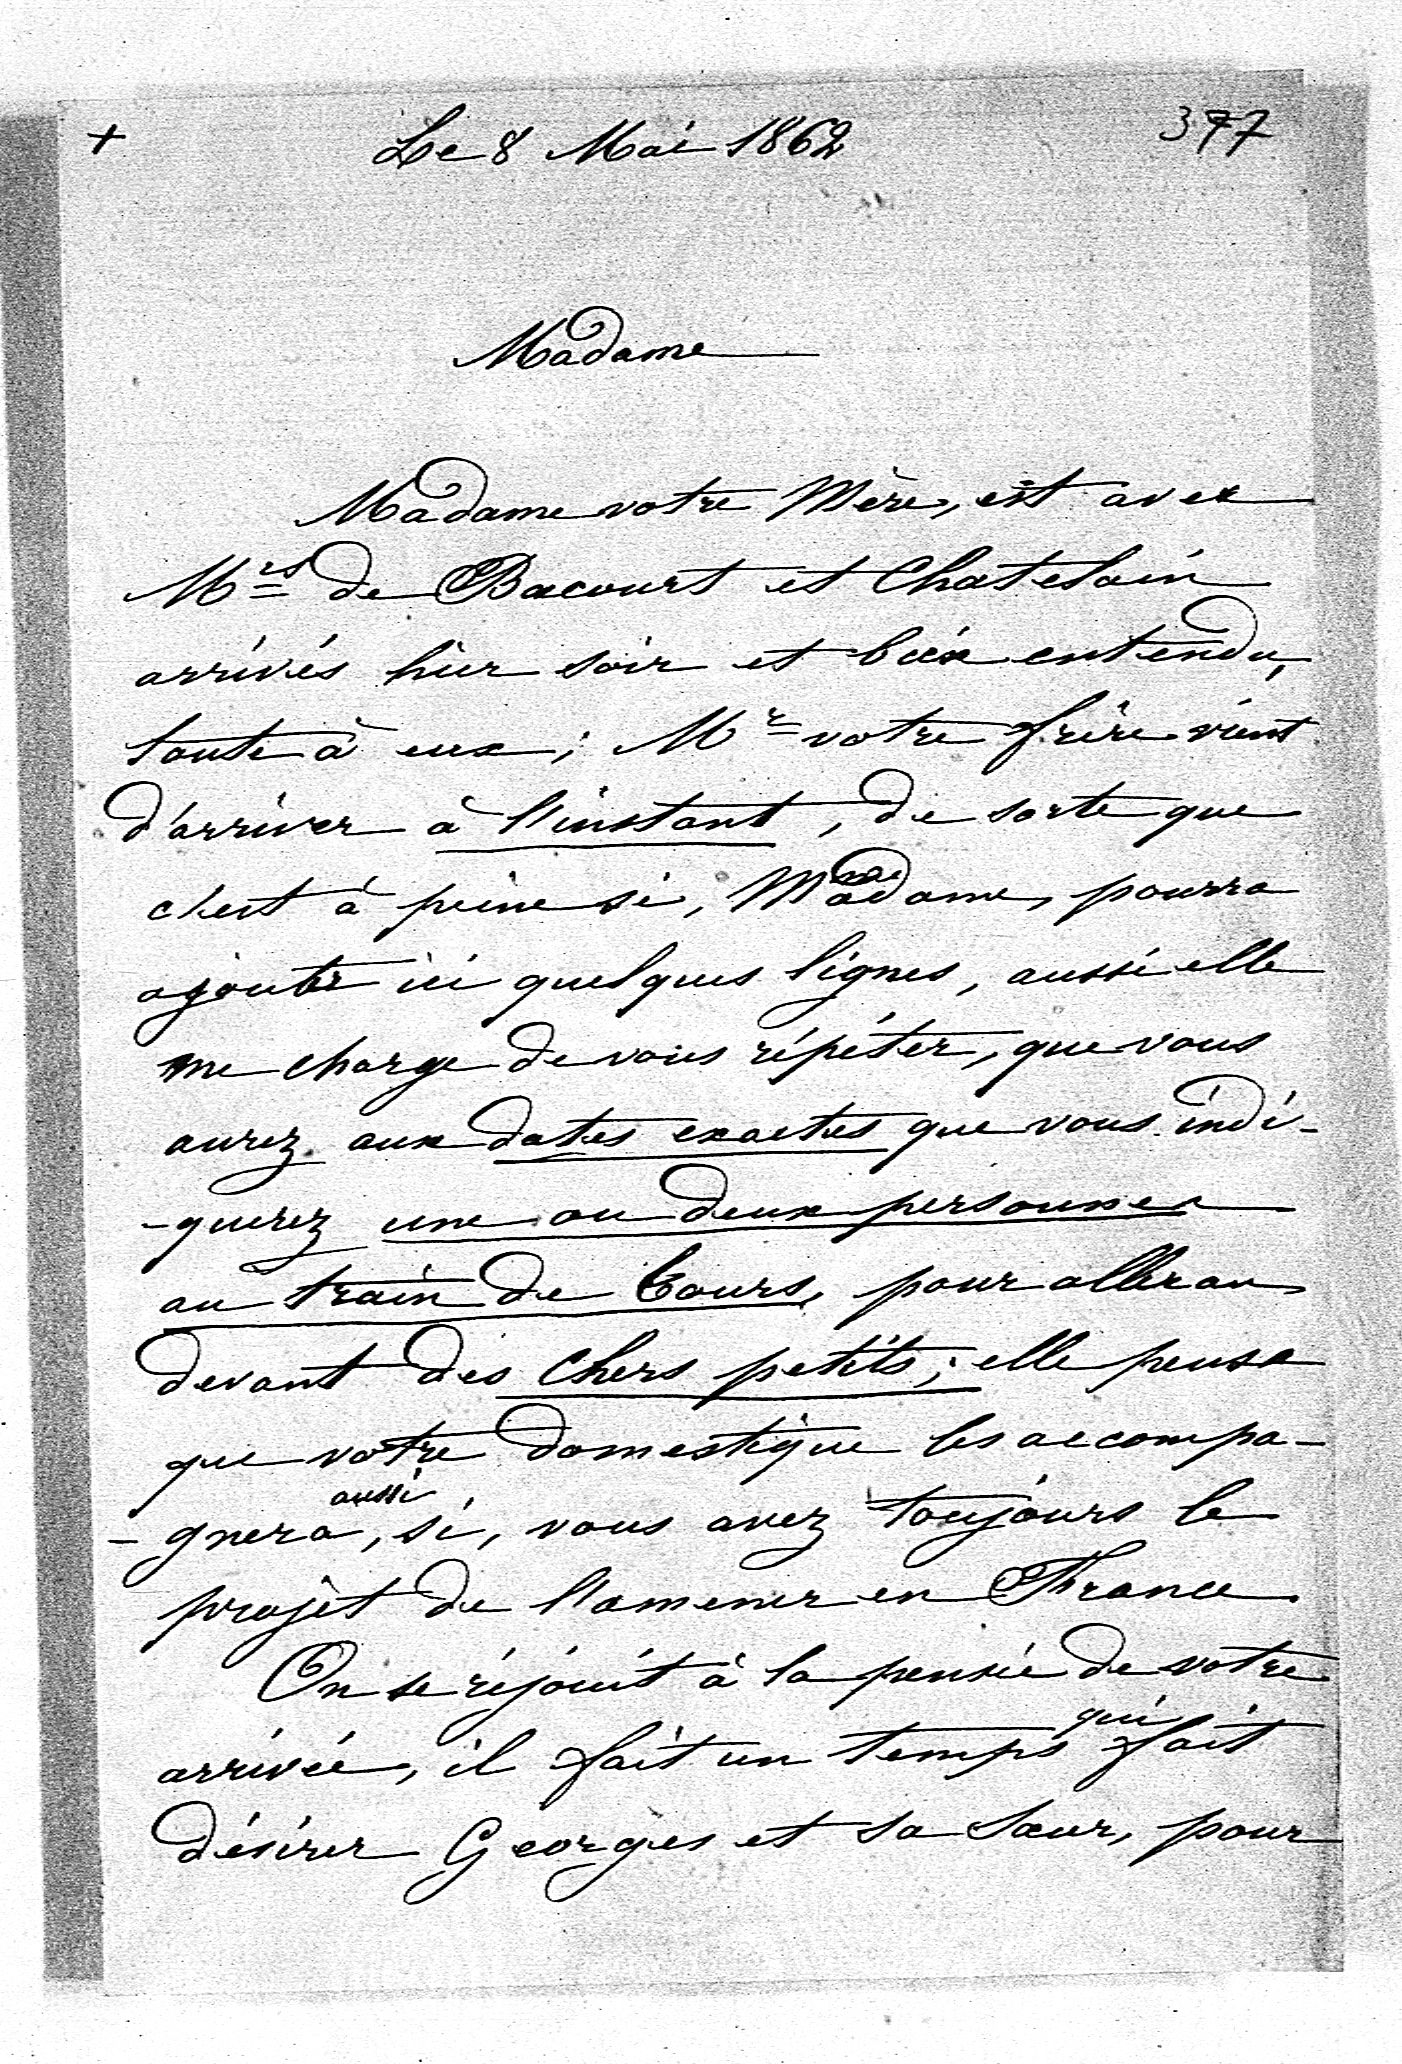 + Le 8 Mai 1862 377
Madame
Madame votre Mère, est avec
Mrs de Bacourt et Chatelain
arrivés hier soir et bien entendu,
toute à eux; Mr votre frère vient
d'arriver à l'instant, de sorte que
c'est à peine si, Madame, pourra
ajouter ici quelques lignes, aussi elle
me charge de vous répéter, que vous
aurez aux dates exactes que vous indi-
-querez une ou deux personnes
au train de Tours, pour aller au
devant des chers petits; elle pense
que votre domestique les accompa-
-gnera aussi, si, vous avez toujours le
projet de l'amener en France.
On se réjouit à la pensée de votre
arrivée, il fait un temps qui fait
désirer Georges et sa sœur, pour